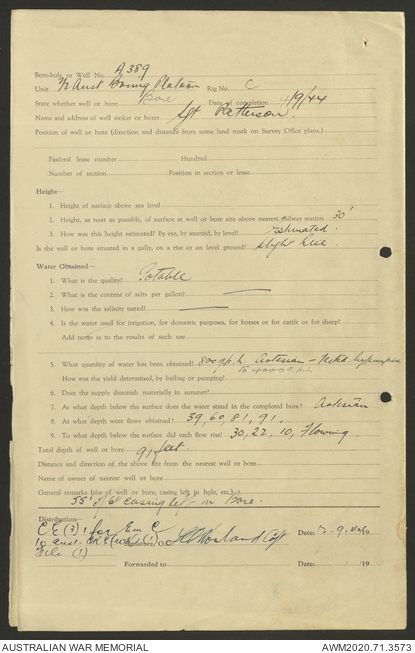 Bore-hole or Well No. A 389
Unit 1/2 Aust Boring Platoon Rig No. C
State whether well or bore Bore Date of completion 4/9/44
Name and address of well sinker or borer Sgt Patterson
Position of well or bore (direction and distance from some land mark on Survey Office plans.)
Pastoral lease number Hundred
Number of section Position in section or lease
Height—
1. Height of surface above sea level
2. Height, as near as possible, of surface at well or bore site above nearest railway station 30'
3. How was this height estimated? By eye, by aneroid, by level? Estimated.
Is the well or bore situated in a gully, on a rise or on level ground? slight Rise.
Water Obtained—
1. What is the quality? Potable
2. What is the content of salts per gallon?
3. How was the salinity tested?
4. Is the water used for irrigation, for domestic purposes, for horses or for cattle or for sheep?
Add notes as to the results of such use
5. What quantity of water has been obtained? 800 g.p.h. Artesian -
to 4000 g.p.h
How was the yield determined, by bailing or pumping?
6. Does the supply diminish materially in summer?
7. At what depth below the surface does the water stand in the completed bore? Artesian
8. At what depth were flows obtained? 39, 60, 81, 91,
9. To what depth below the surface did each flow rise? 30, 22, 10, Flowing.
Total depth of well or bore 91 feet.
Distance and direction of, the above site from the nearest well or bore
Name of owner of nearest well or bore
General remarks (size of well or bore, casing left in hole, etc.)
55' of 6" casing left in Bore.
Distribution—
C E (3) 1 for
Signature, O.C. Capt Date: 2.9.
File (1)
Forwarded to Date: 19
AUSTRALIAN WAR MEMORIAL AWM2020.71.3573